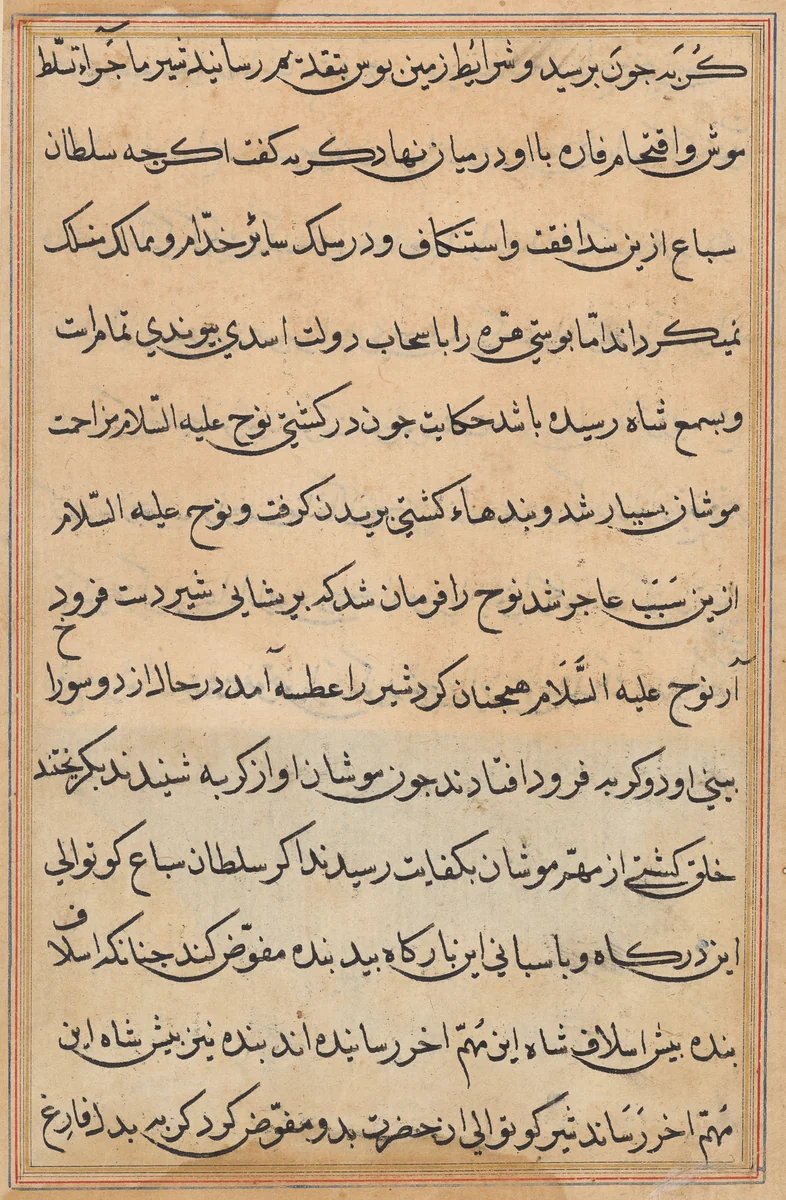 کُربَه جونَ برسید و شرایُط زمین بوس بتقدیم رسانید شیر ماجَراء تسلّط
موش و اقتحام فاره با او در میان نهاد کربه کفت اکرجه سلطان
سباع ازین سدافقت و استنکاف و در سلک سائر خدّام و ممالک منسلک
نمیکرداند امّا بوستی هرّه را باسحاب دولت اسدی بیوندی تمامراست
و بسمع شاه رسیده باشد حکایت جون در کشتی نوح علیه السّلام مزاحمت
موشان بسیار شد و بندهاء کشتی بریدن کرفت و نوح علیه السّلام
ازین سَبَبَ عاجز شد نوح را فرمان شد که بر پشانی شیر دست فرود
آر نوح علیه السَّلَام همجنان کرد شیر را عطسه آمد در حال از دو سوراخ
بینی او دو کربه فرود افتادند جون موشان اواز کربه شنیدند بکریختند
خلق کشتی از مهمّ موشان بکفایت رسیدند اکر سلطان سباع کوتوالی
این درکاه و باسبانی این بارکاه بید بنده مفوّض کند جنانکه اسلاف
بنده بیش اسلاف شاه این مُهمّ اخر رسانیده اند بنده نیز بیش شاه این
مُهمّ اخر رَسَاند شیر کوتوالی ان حضرت بدو مفوّض کرد کربه بدل فارِغ